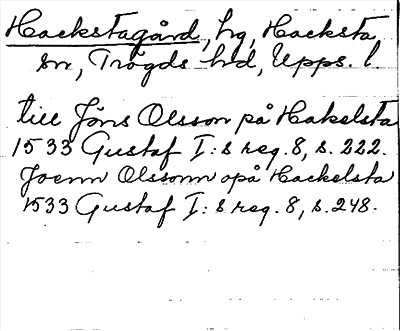 Hackstagård, hg, Hacksta
sn, Trögds hd, Upps. l.
till Jöns Olsson på Hakelsta
1533 Gustaf I:s reg. 8, s. 222.
Joenn Olssonn opå Hackelsta
1533 Gustaf I:s reg. 8, s. 248.